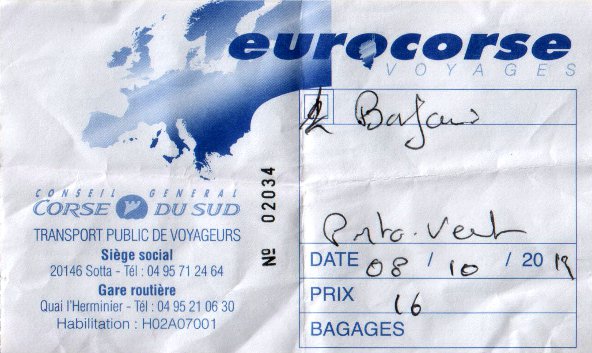 eurocorse
VOYAGES
CONSEIL GENERAL
CORSE DU SUD
TRANSPORT PUBLIC DE VOYAGEURS
Siège social
20146 Sotta - Tél : 04 95 71 24 64
Gare routière
Quai l'Herminier - Tél : 04 95 21 06 30
Habilitation : H02A07001
Nº 02034
Porto-Vecch
DATE 08 / 10 / 20
PRIX 16
BAGAGES